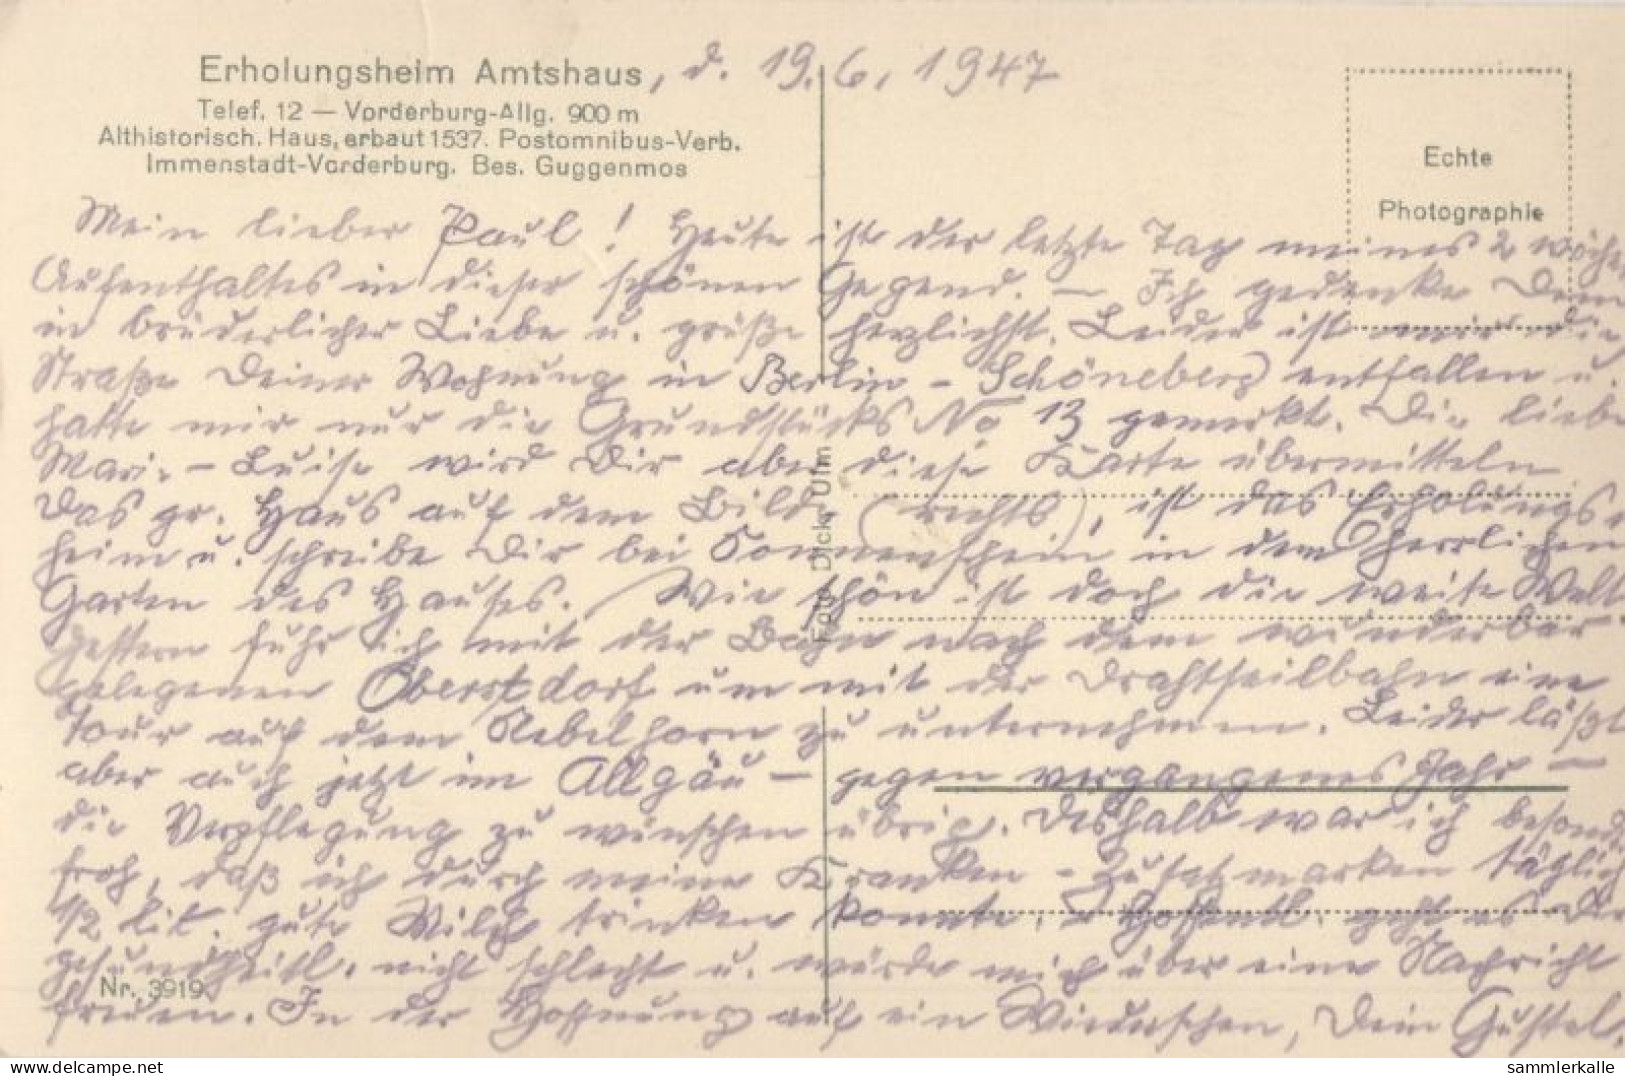 Erholungsheim Amtshaus, d. 19.6.1947
Telef. 12 — Vorderburg-Allg. 900 m
Althistorisch. Haus, erbaut 1537. Postomnibus-Verb.
Immenstadt-Vorderburg. Bes. Guggenmos
Echte
Photographie
Mein lieber Paul! Heute ist der letzte Tag meines 2 wöche
Aufenthaltes in dieser schönen Gegend. — Ich gedenke Dein
in brüderlicher Liebe u. grüße herzlichst. Leider ist mir die
Straße Deiner Wohnung in Berlin-Schöneberg entfallen u.
hatte mir nur die Grundstücks No 13 gemerkt. Die liebe
Marie-Luise wird Dir aber diese Karte übermitteln
Das gr. Haus auf dem Bilde (rechts), ist das Erholungs-
heim u. schreibe Dir bei Sonnenschein in dem herrlichen
Garten des Hauses. Wie schön ist doch die weite Welt
Gestern fuhr ich mit der Bahn nach dem wunderbar
gelegenen Oberstdorf um mit der Drahtseilbahn eine
Tour auf dem Nebelhorn zu unternehmen. Leider läßt
aber auch jetzt im Allgäu — gegen vergangenes Jahr —
die Verpflegung zu wünschen übrig. Deshalb war ich besond
froh, daß ich durch meine Kranken-Zusatzmarken täglich
1/2 Lit. gute Milch trinken konnte. — Hoffentl. geht es Dir
gesundheitl. nicht schlecht u. würde mich über eine Nachricht
freuen. In der Hoffnung auf ein Wiedersehen, Dein Gustel.
Foto Dick Ulm
Nr. 3919
www.delcampe.net
sammlerkalle